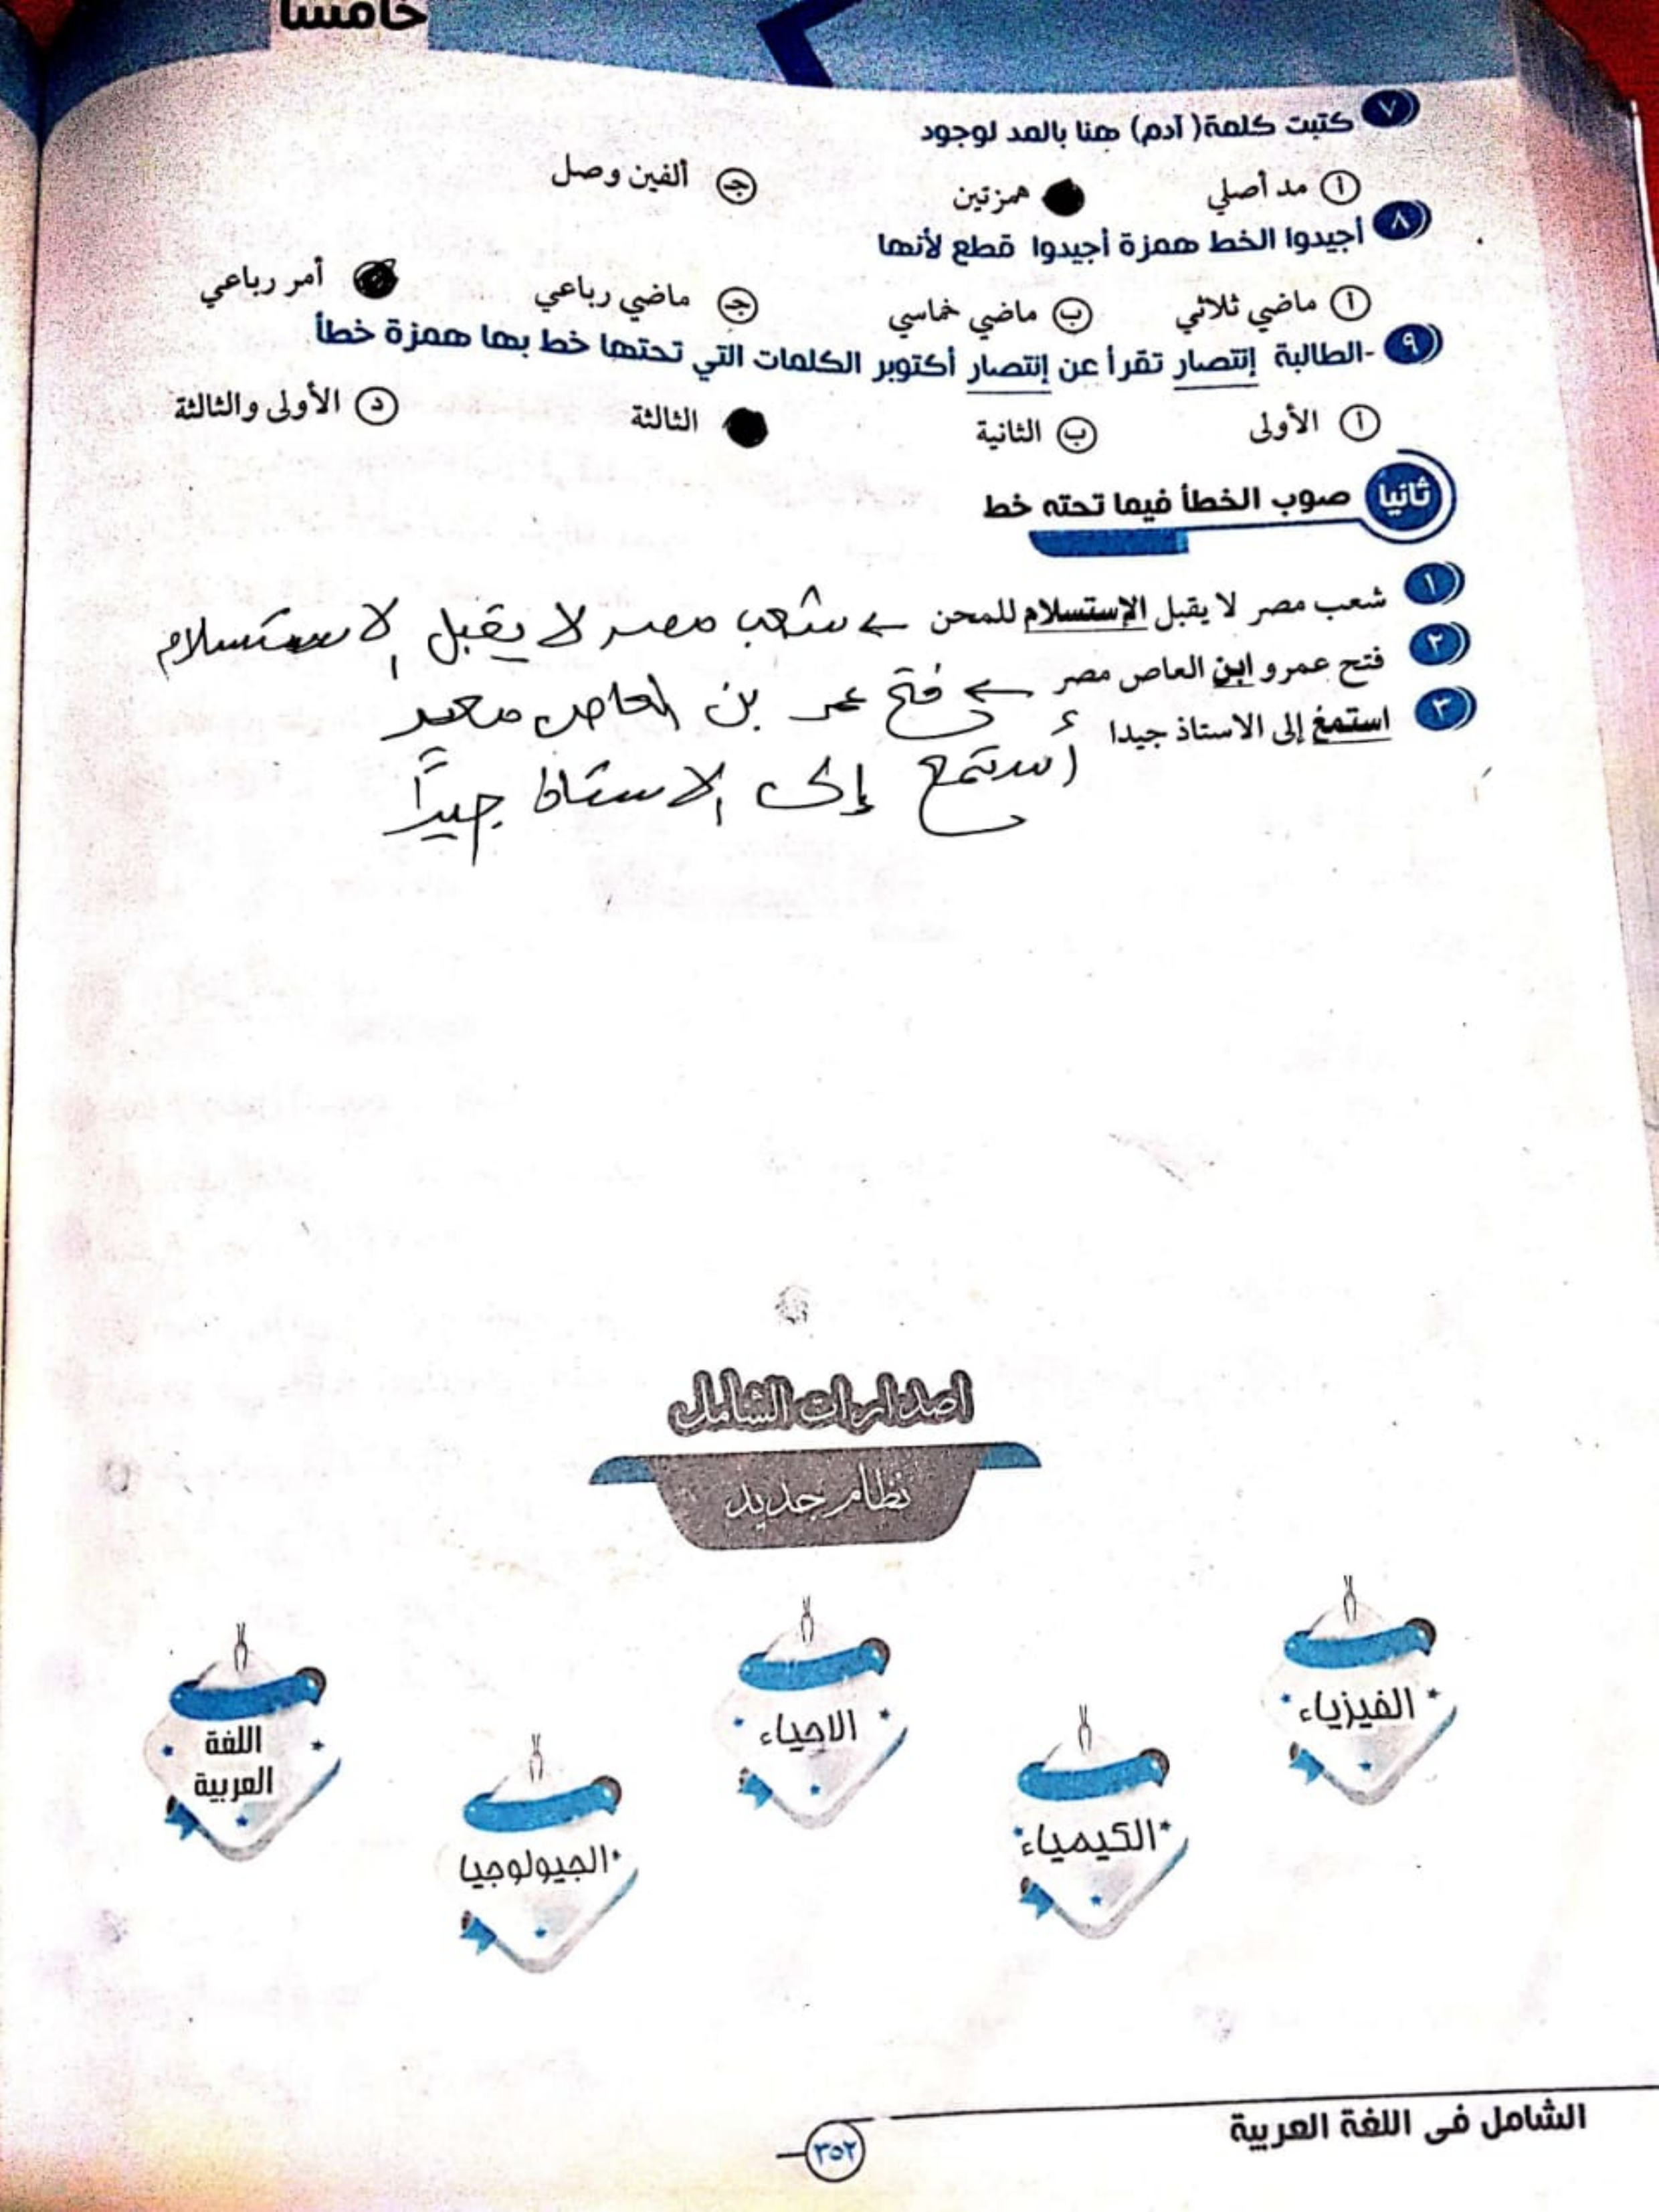 خامسًا
٧ كتبت كلمة( آدم) هنا بالمد لوجود
أ مد أصلي همزتين جـ ألفين وصل
٨ أجيدوا الخط همزة أجيدوا قطع لأنها
أ ماضي ثلاثي ب ماضي خماسي جـ ماضي رباعي أمر رباعي
٩ -الطالبة إنتصار تقرأ عن إنتصار أكتوبر الكلمات التي تحتها خط بها همزة خطأ
أ الأولى ب الثانية الثالثة د الأولى والثالثة
ثانيا صوب الخطأ فيما تحته خط
١ شعب مصر لا يقبل الإستسلام للمحن ← شعب مصر لا يقبل الاستسلام
٢ فتح عمرو ابن العاص مصر ← فتح عمر بن العاص مصر
٣ استمع إلى الاستاذ جيدا
أستمع إلى الاستاذ جيدًا
اصدارات الشامل
نظام جديد
الفيزياء
الكيمياء
الاحياء
الجيولوجيا
اللغة
العربية
الشامل فى اللغة العربية
٣٥٢